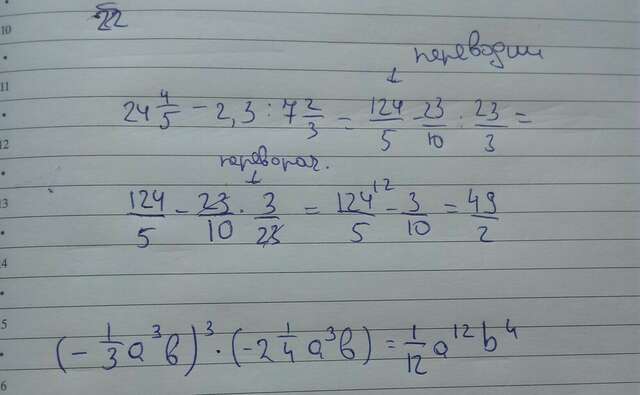 22
переводим
24 4/5 - 2,3 : 7 2/3 = 124/5 - 23/10 : 23/3 =
переворач.
124/5 - 23/10 · 3/23 = 124^12/5 - 3/10 = 49/2
(- 1/3 a³b)³ · (-2 1/4 a³b) = 1/12 a¹² b⁴